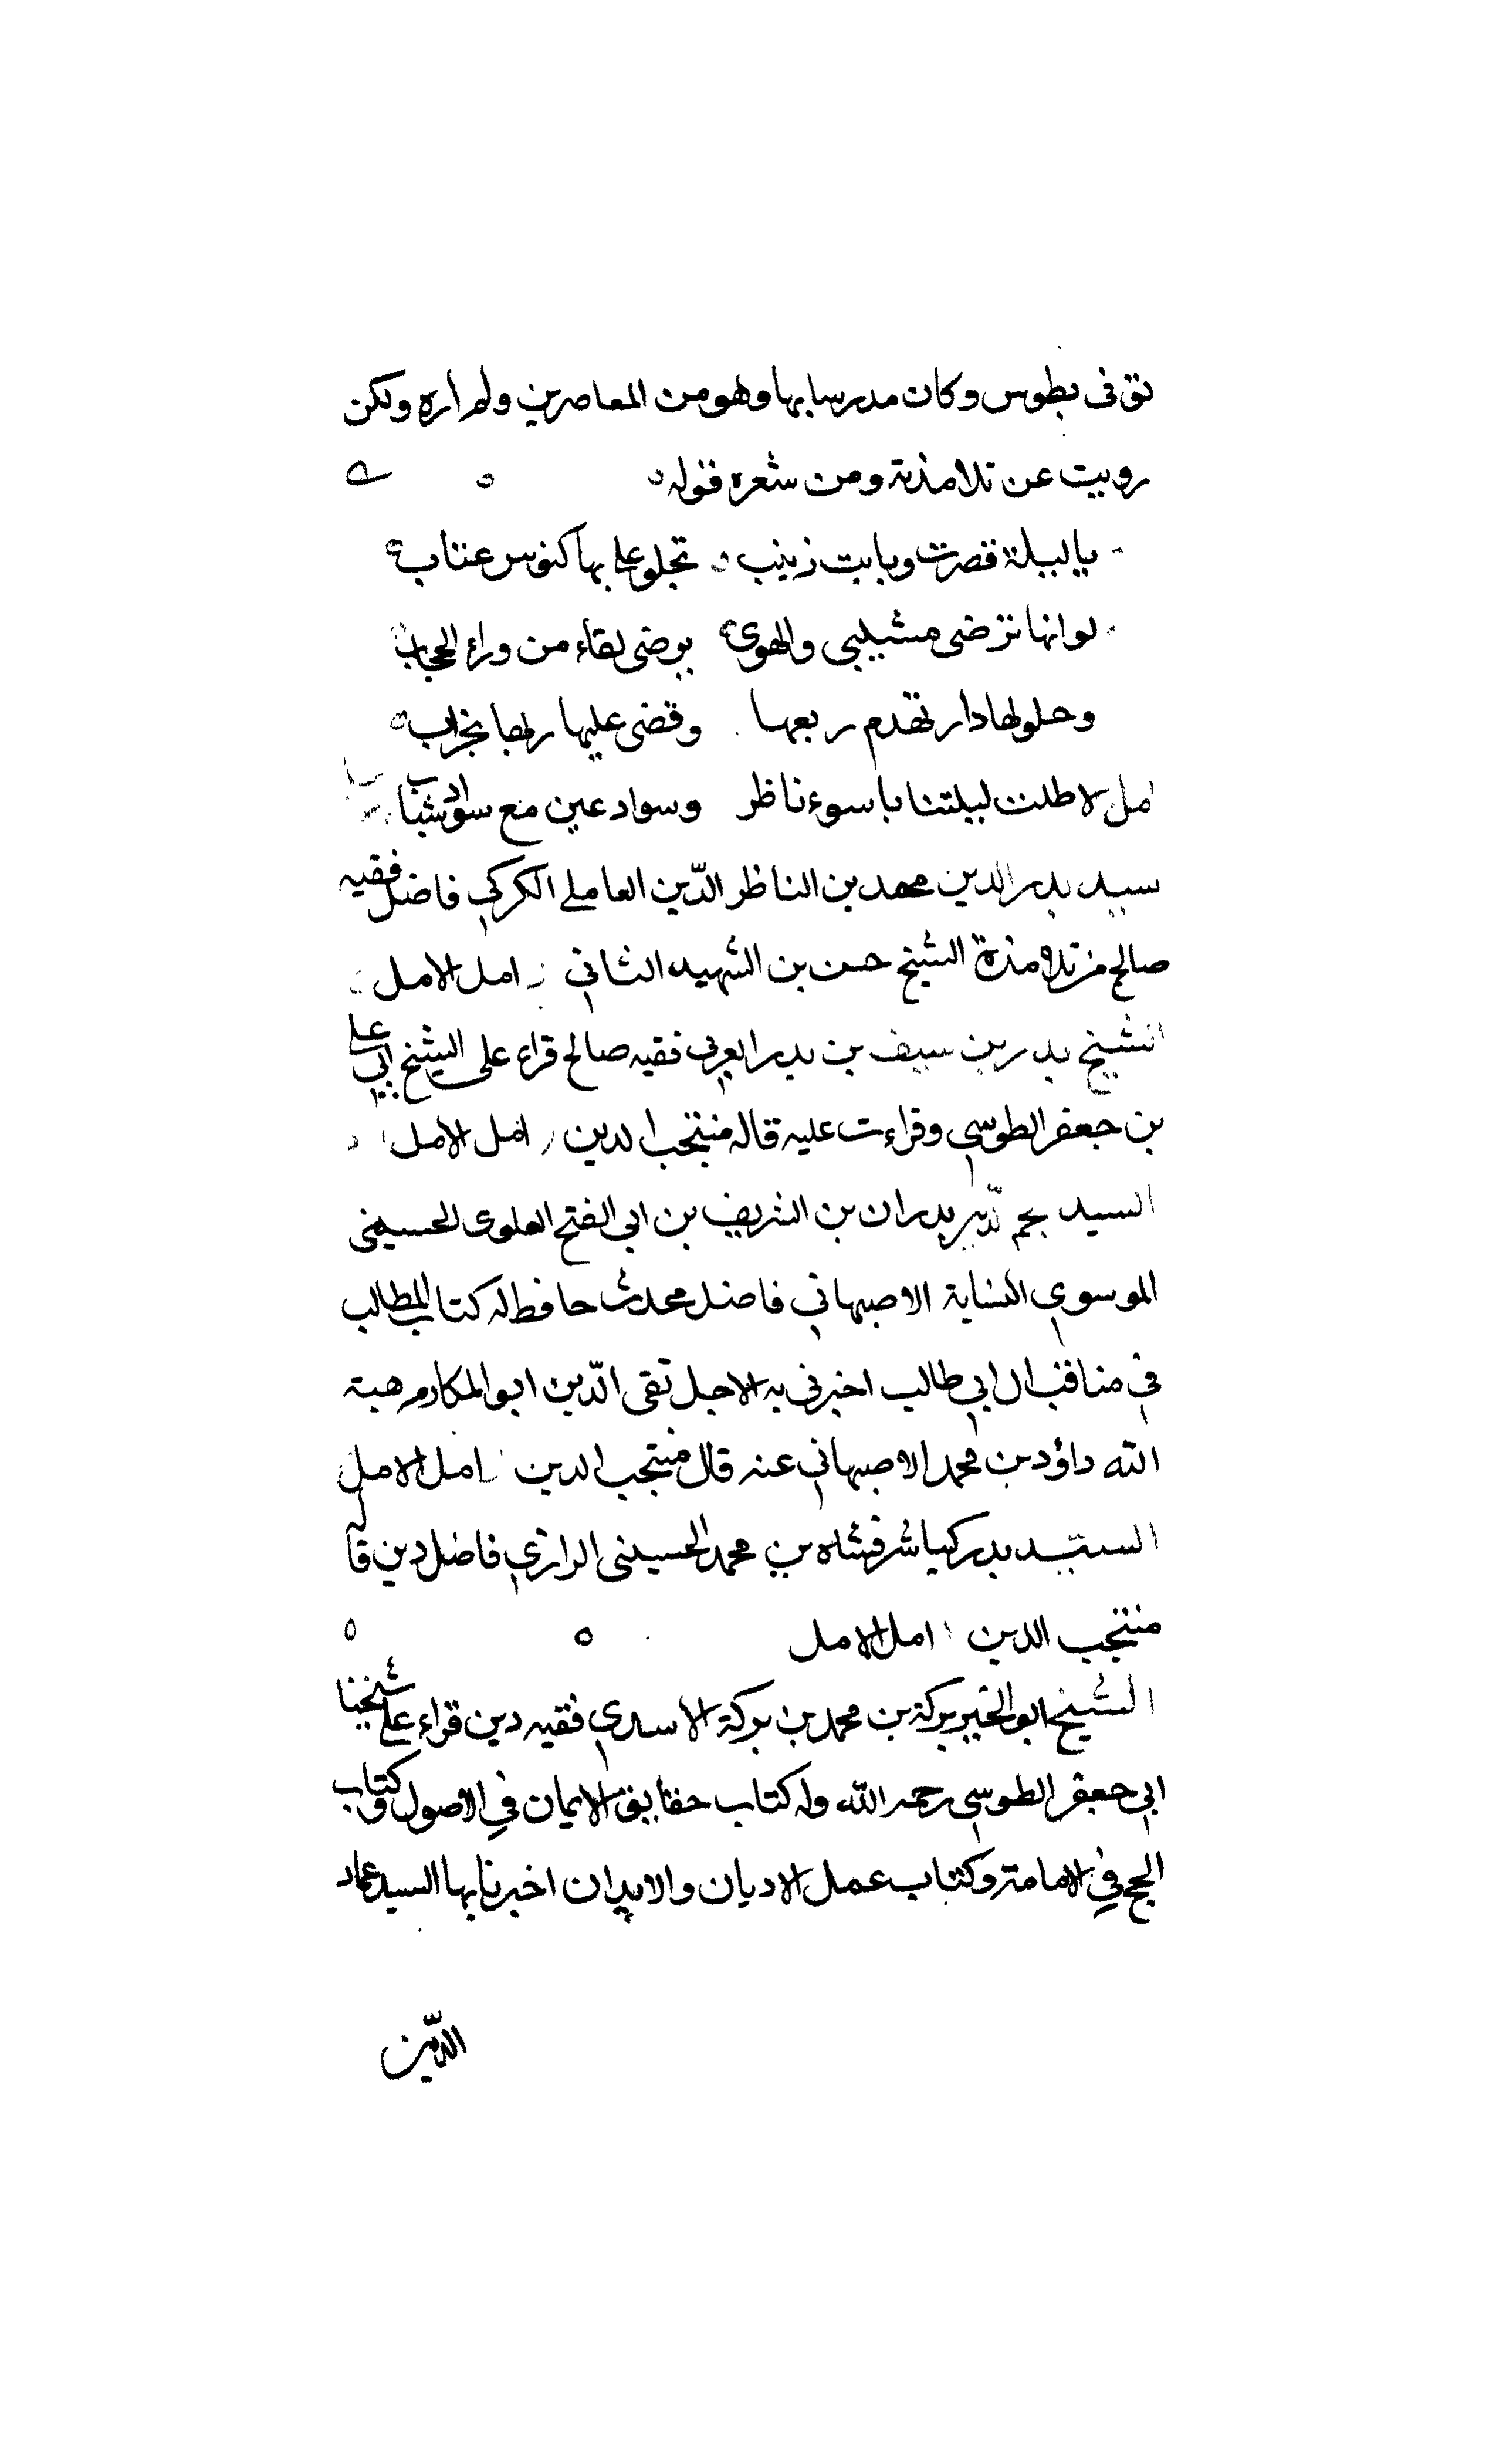 توفى بطوس وكان مدرسا بها وهو من المعاصرين ولم اره ولكن
رويت عن تلامذته ومن شعره قوله
يا ليلة قصرت وباتت زينب تجلو على بها كئوس عتاب
لو انها ترضى مشيبى والهوى يرضى لقاء من وراء الحجاب
وحلولها دار تقدم ربعها وقضى عليها ربها بخراب
لاطلت ليلتنا باسوء ناظر وسواد عين مع سواد شباب
سيد بدر الدين محمد بن الناظر الدّين العاملي الكركي فاضل فقيه
صالح من تلامذة الشيخ حسن بن الشهيد الثاني امل الامل
الشيخ بدر بن سيف بن بدر العربي فقيه صالح قراء على الشيخ ابي علي
بن جعفر الطوسي وقراءت عليه قاله منتجب الدين امل الامل
السيد نجم الدين بدران بن الشريف بن ابي الفتح العلوى الحسينى
الموسوي النسابة الاصبهاني فاضل محدث حافظ له كتاب المطالب
في مناقب ال ابي طالب اخبرني به الاجل تقى الدّين ابو المكارم هبة
الله داؤد بن محمد الاصبهاني عنه قال منتجب الدين امل الامل
السيّد بدر كيا شرفشاه بن محمد الحسينى الرازي فاضل دين قاله
منتجب الدين امل الامل
الشيخ ابو الخير بركة بن محمد بن بركة الاسدي فقيه دين قراء على شيخنا
ابي جعفر الطوسي رحمه الله وله كتاب حقايق الايمان في الاصول وكتاب
الحجج في الامامة وكتاب عمل الاديان والابدان اخبرنا بها السيد عماد
الدّين